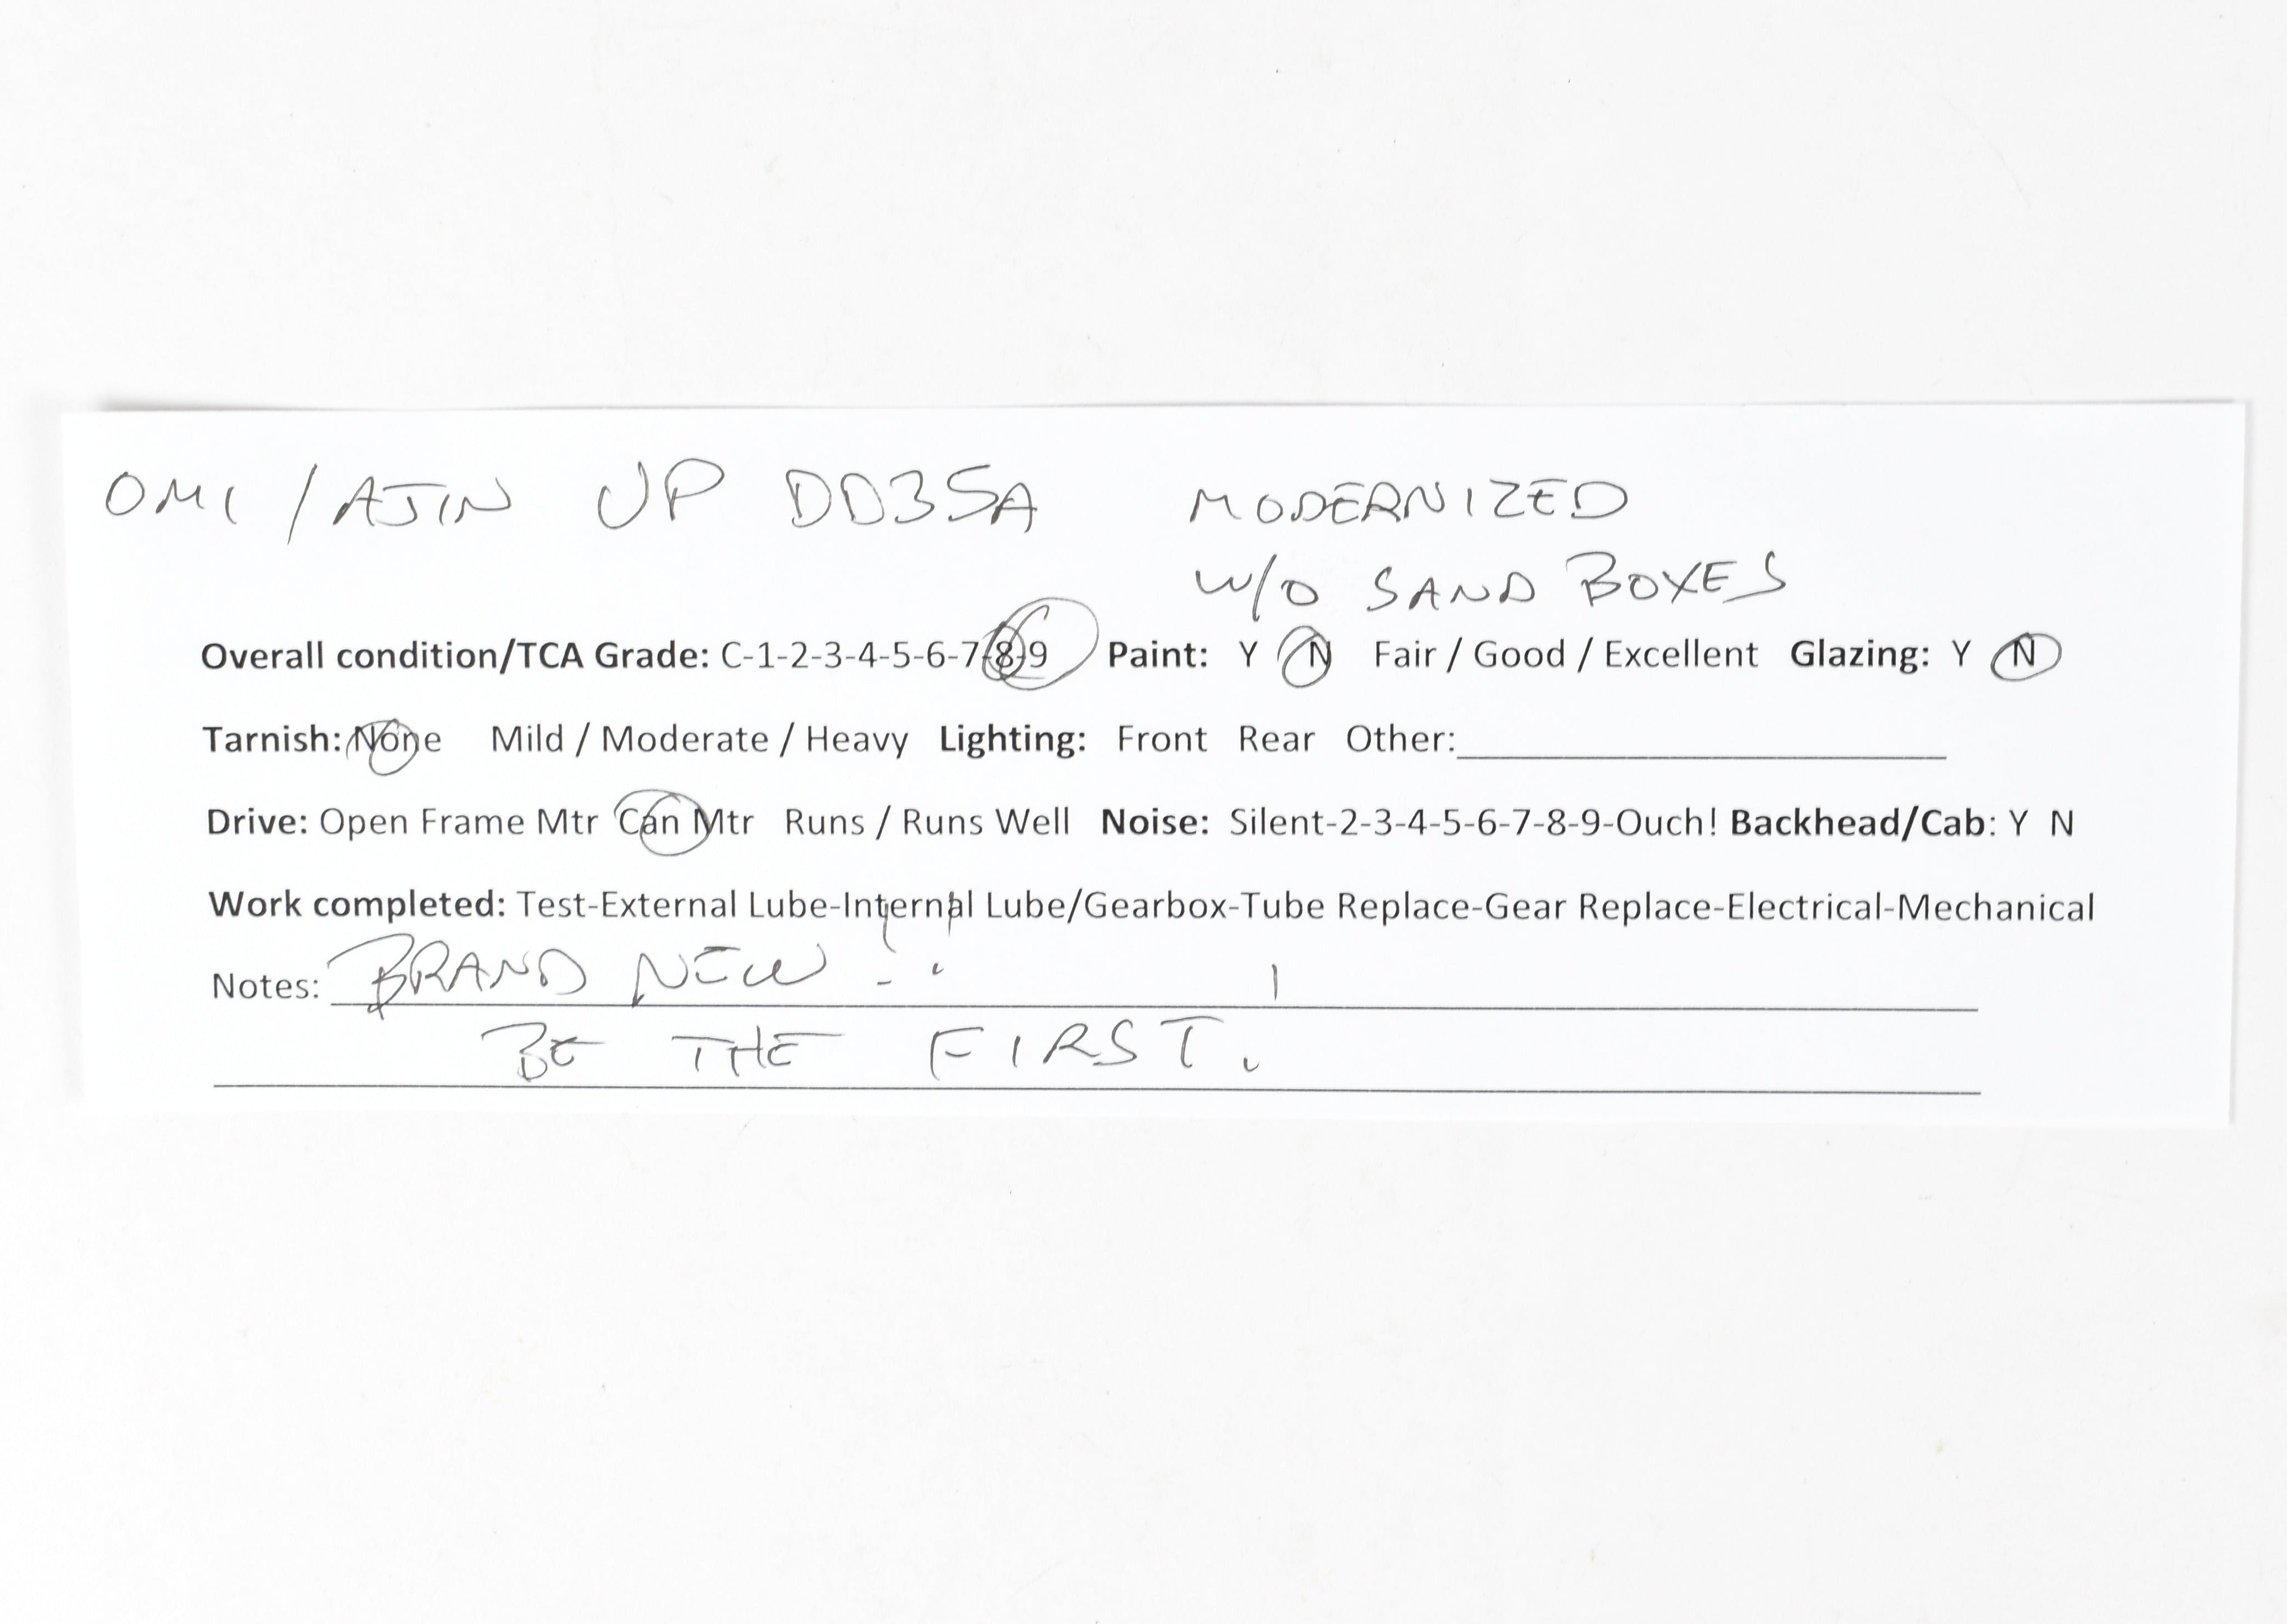 OMI / AJIN UP DD35A MODERNIZED
W/O SAND BOXES
Overall condition/TCA Grade: C-1-2-3-4-5-6-7-8-9 Paint: Y N Fair / Good / Excellent Glazing: Y N
Tarnish: None Mild / Moderate / Heavy Lighting: Front Rear Other:
Drive: Open Frame Mtr Can Mtr Runs / Runs Well Noise: Silent-2-3-4-5-6-7-8-9-Ouch! Backhead/Cab: Y N
Work completed: Test-External Lube-Internal Lube/Gearbox-Tube Replace-Gear Replace-Electrical-Mechanical
Notes: BRAND NEW
BE THE FIRST.